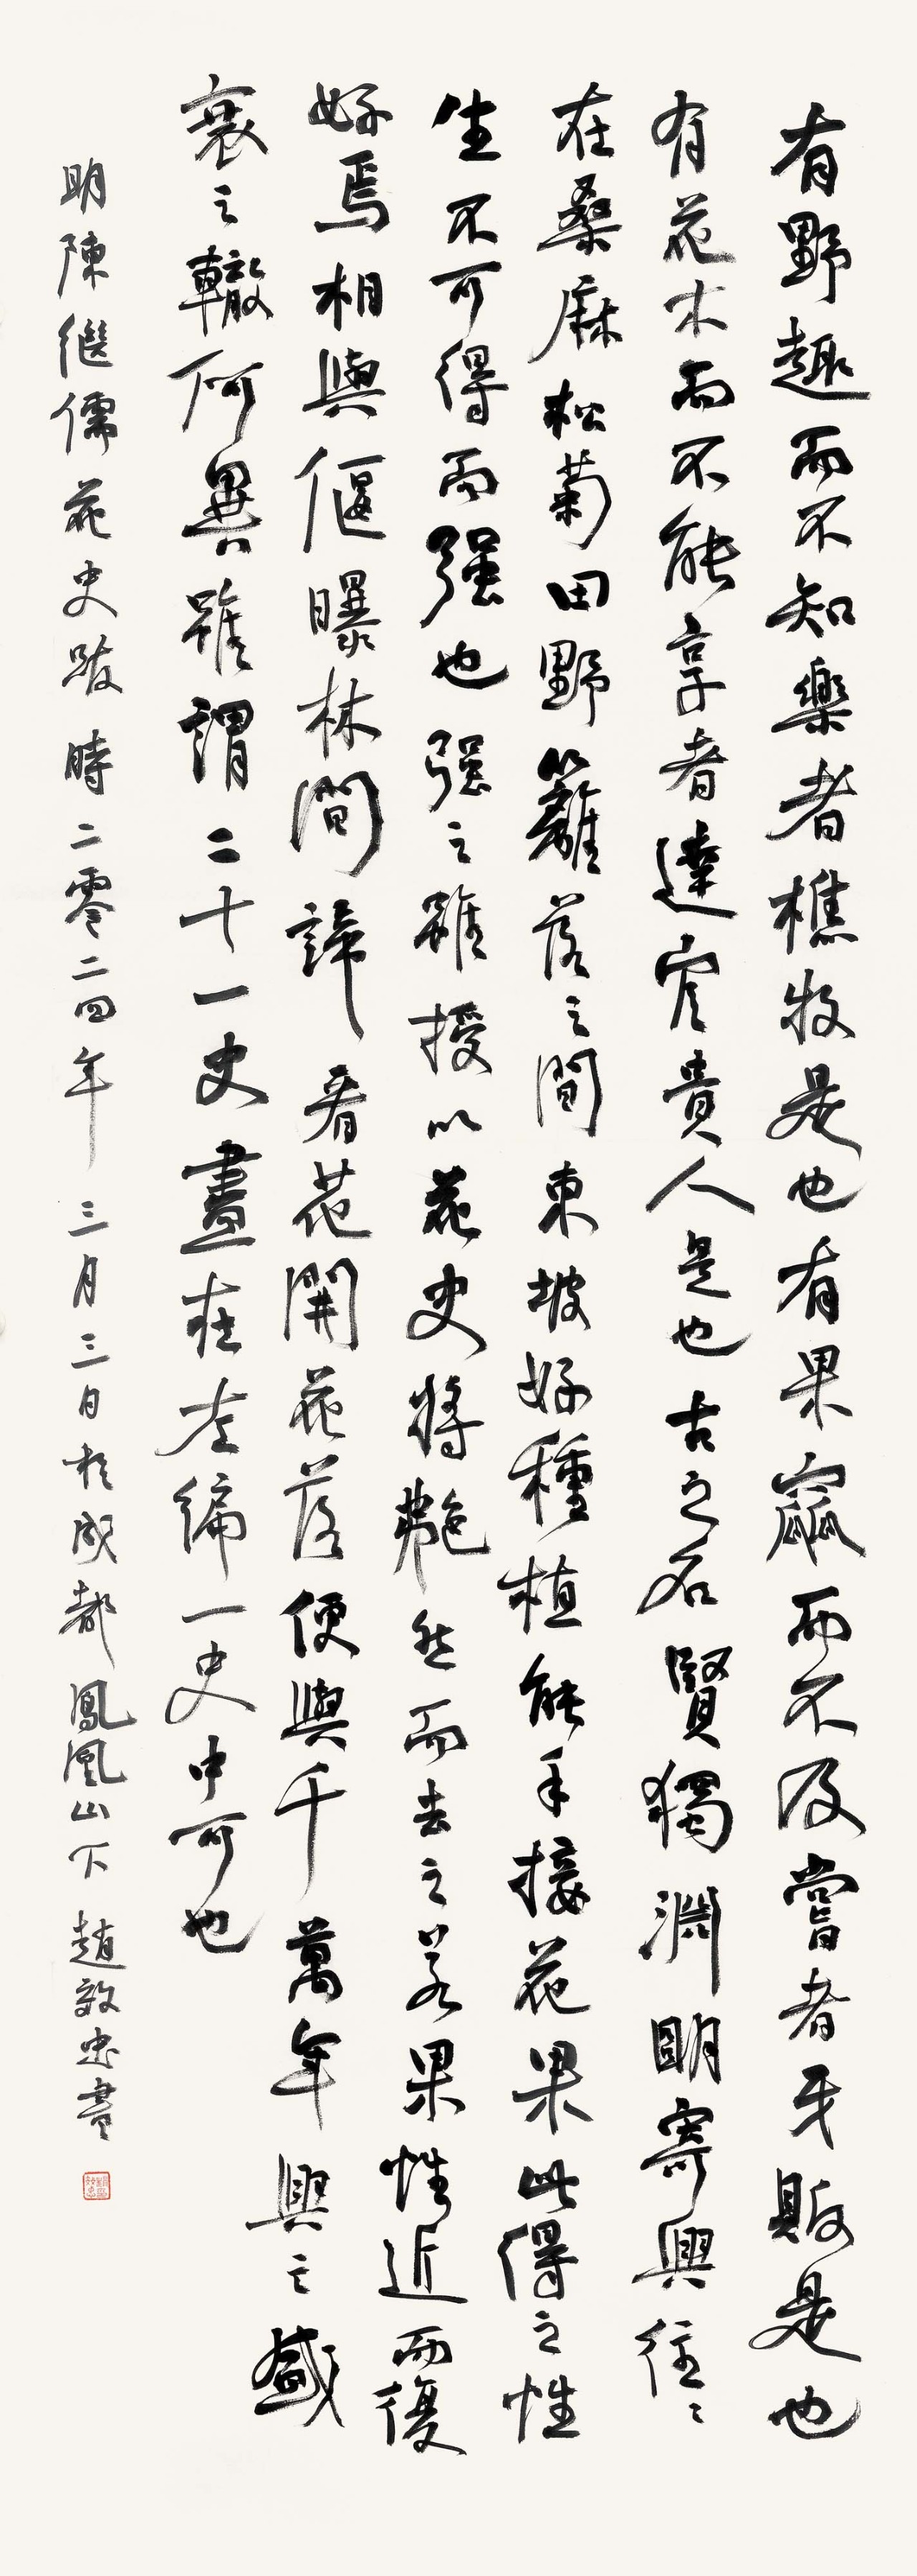 有野趣而不知樂者樵牧是也有果窳而不及嘗者牙販是也
有花木而不能享者達官貴人是也古之名賢獨淵明寄興往々
在桑麻松菊田野籬落之間東坡好種植能手接花果此得之性
生不可得而强也强之雖授以花史將艴然而去之若果性近而復
好焉相與偃曝林間諦看花開花落便與千萬年興亡盛
衰之轍何異雖謂二十一史盡在左編一史中可也
明陳繼儒花史跋時二零二四年三月三日於成都鳳凰山下趙效忠書